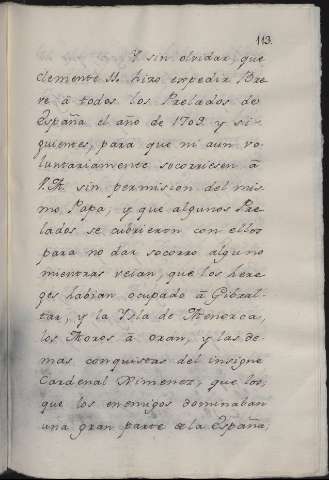 113.
Y sin olvidar, que
Clemente 11. hizo expedir Bre-
ve â todos los Prelados de
España el año de 1709. y si-
guientes, para que ni aun vo-
luntariamente socorriesen â
V.M. sin permision del mis-
mo Papa, y que algunos Pre-
lados se cubrieron con ellos
para no dar socorro alguno
mientras veian, que los here-
ges habian ocupado â Gibral-
tar, y la Ysla de Menorca,
los Moros â Oran, y las de-
mas conquistas del insigne
Cardenal Ximenez, que los,
que los enemigos dominaban
una gran parte de la España,